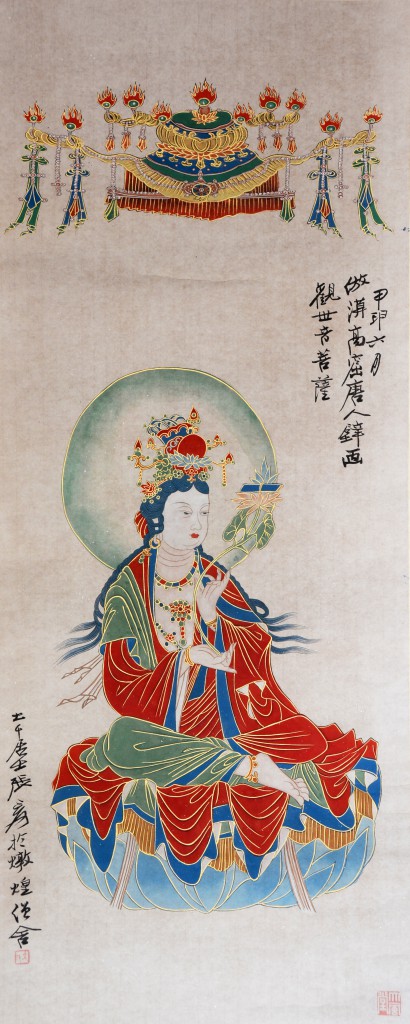 甲申六月
倣漠高窟唐人壁画
觀世音菩薩
大千居士張爰於燉煌僧舍